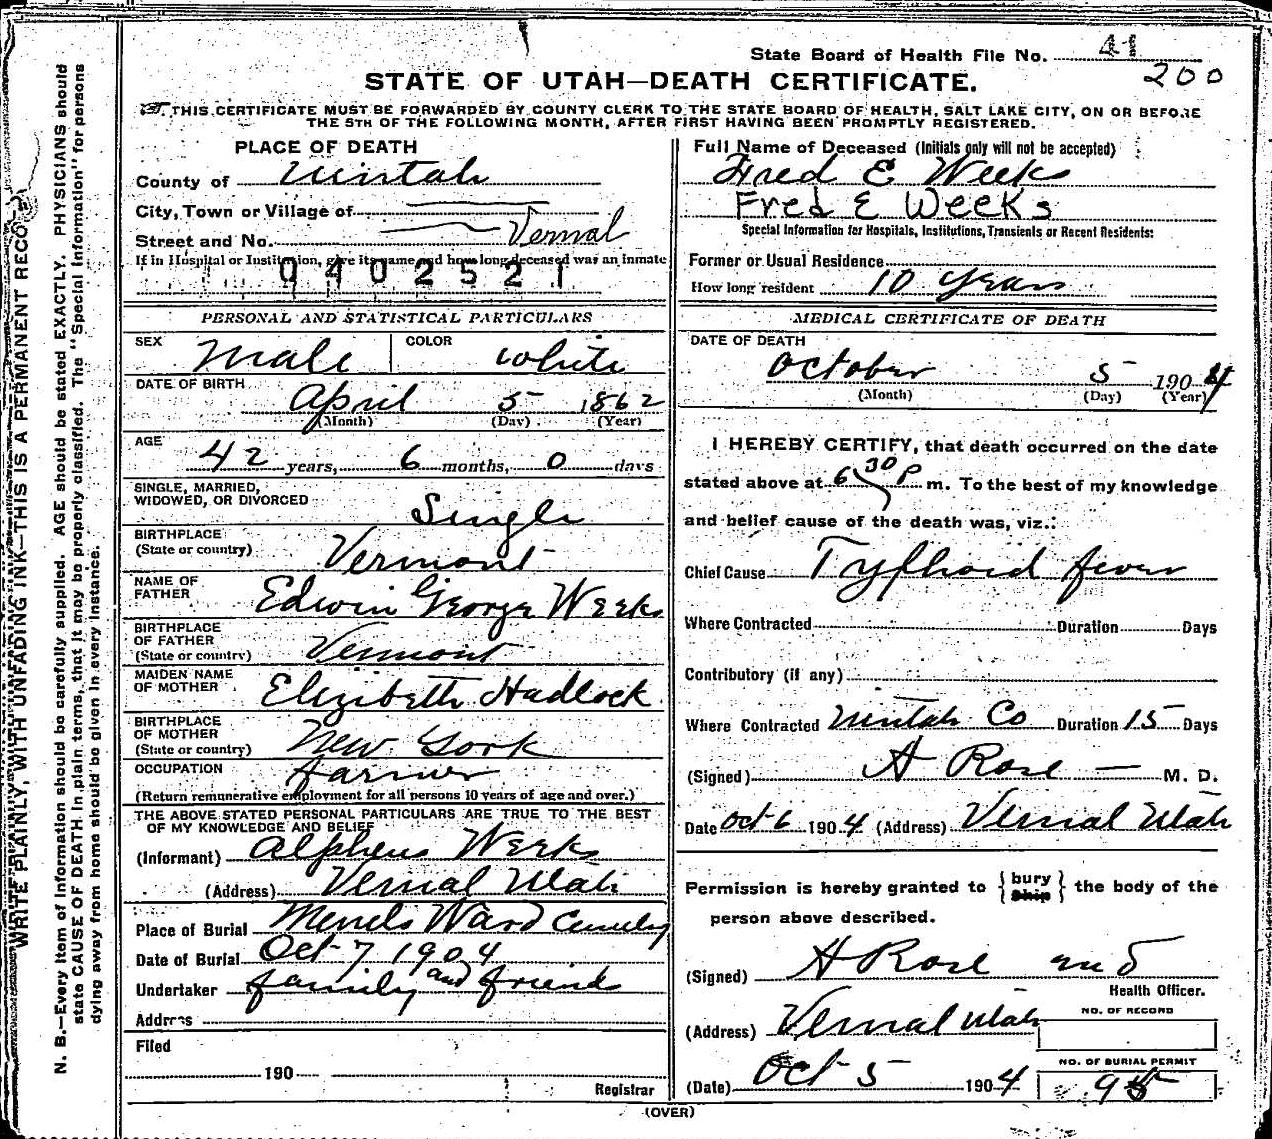 State Board of Health File No. 41
200
STATE OF UTAH—DEATH CERTIFICATE.
THIS CERTIFICATE MUST BE FORWARDED BY COUNTY CLERK TO THE STATE BOARD OF HEALTH, SALT LAKE CITY, ON OR BEFORE
THE 5TH OF THE FOLLOWING MONTH, AFTER FIRST HAVING BEEN PROMPTLY REGISTERED.
WRITE PLAINLY, WITH UNFADING INK—THIS IS A PERMANENT RECO
N. B.—Every item of information should be carefully supplied. AGE should be stated EXACTLY. PHYSICIANS should
state CAUSE OF DEATH in plain terms, that it may be properly classified. The "Special Information" for persons
dying away from home should be given in every instance.
PLACE OF DEATH
County of Uintah
City, Town or Village of
Street and No. Vernal
If in Hospital or Institution, give its name and how long deceased was an inmate
0402521
PERSONAL AND STATISTICAL PARTICULARS
SEX Male COLOR White
DATE OF BIRTH April 5 1862
(Month) (Day) (Year)
AGE 42 years, 6 months, 0 days
SINGLE, MARRIED,
WIDOWED, OR DIVORCED Single
BIRTHPLACE
(State or country) Vermont
NAME OF
FATHER Edwin George Weeks
BIRTHPLACE
OF FATHER
(State or country) Vermont
MAIDEN NAME
OF MOTHER Elizibeth Hadlock
BIRTHPLACE
OF MOTHER
(State or country) New York
OCCUPATION farmer
(Return remunerative employment for all persons 10 years of age and over.)
THE ABOVE STATED PERSONAL PARTICULARS ARE TRUE TO THE BEST
OF MY KNOWLEDGE AND BELIEF
(Informant) Alpheus Weeks
(Address) Vernal Utah
Place of Burial Ward
Date of Burial Oct 7 1904
Undertaker family and friends
Address
Filed
190
Registrar
Full Name of Deceased (Initials only will not be accepted)
Fred E Weeks
Fred E Weeks
Special Information for Hospitals, Institutions, Transients or Recent Residents:
Former or Usual Residence
How long resident 10 years
MEDICAL CERTIFICATE OF DEATH
DATE OF DEATH
October 5 1904
(Month) (Day) (Year)
I HEREBY CERTIFY, that death occurred on the date
stated above at 6 30 P m. To the best of my knowledge
and belief cause of the death was, viz.:
Chief Cause Tyfhoid fever
Where Contracted Duration Days
Contributory (if any)
Where Contracted Uintah Co Duration 15 Days
(Signed) A Rose M. D.
Date Oct 6 1904 (Address) Vernal Utah
Permission is hereby granted to { bury
Ship } the body of the
person above described.
(Signed) A Rose
Health Officer.
(Address) Vernal Utah
NO. OF RECORD
(Date) Oct 5 1904
NO. OF BURIAL PERMIT
(OVER)